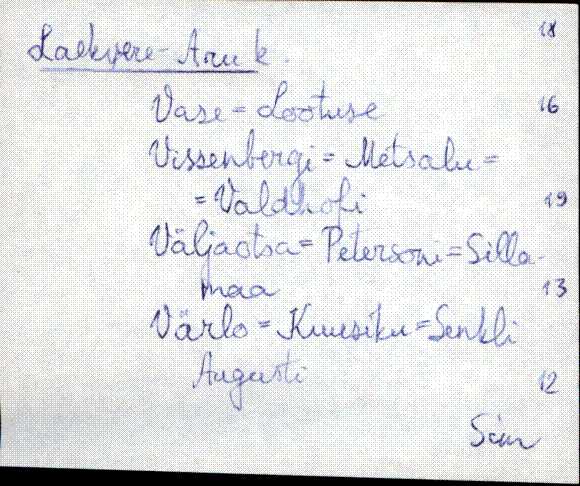 18
Laekvere-Aru k.
Vase = Lootuse 16
Vissenbergi = Metsalu =
= Valdhofi 19
Väljaotsa = Petersoni = Silla-
maa 13
Värlo = Kuusiku = Senkli
Augusti 12